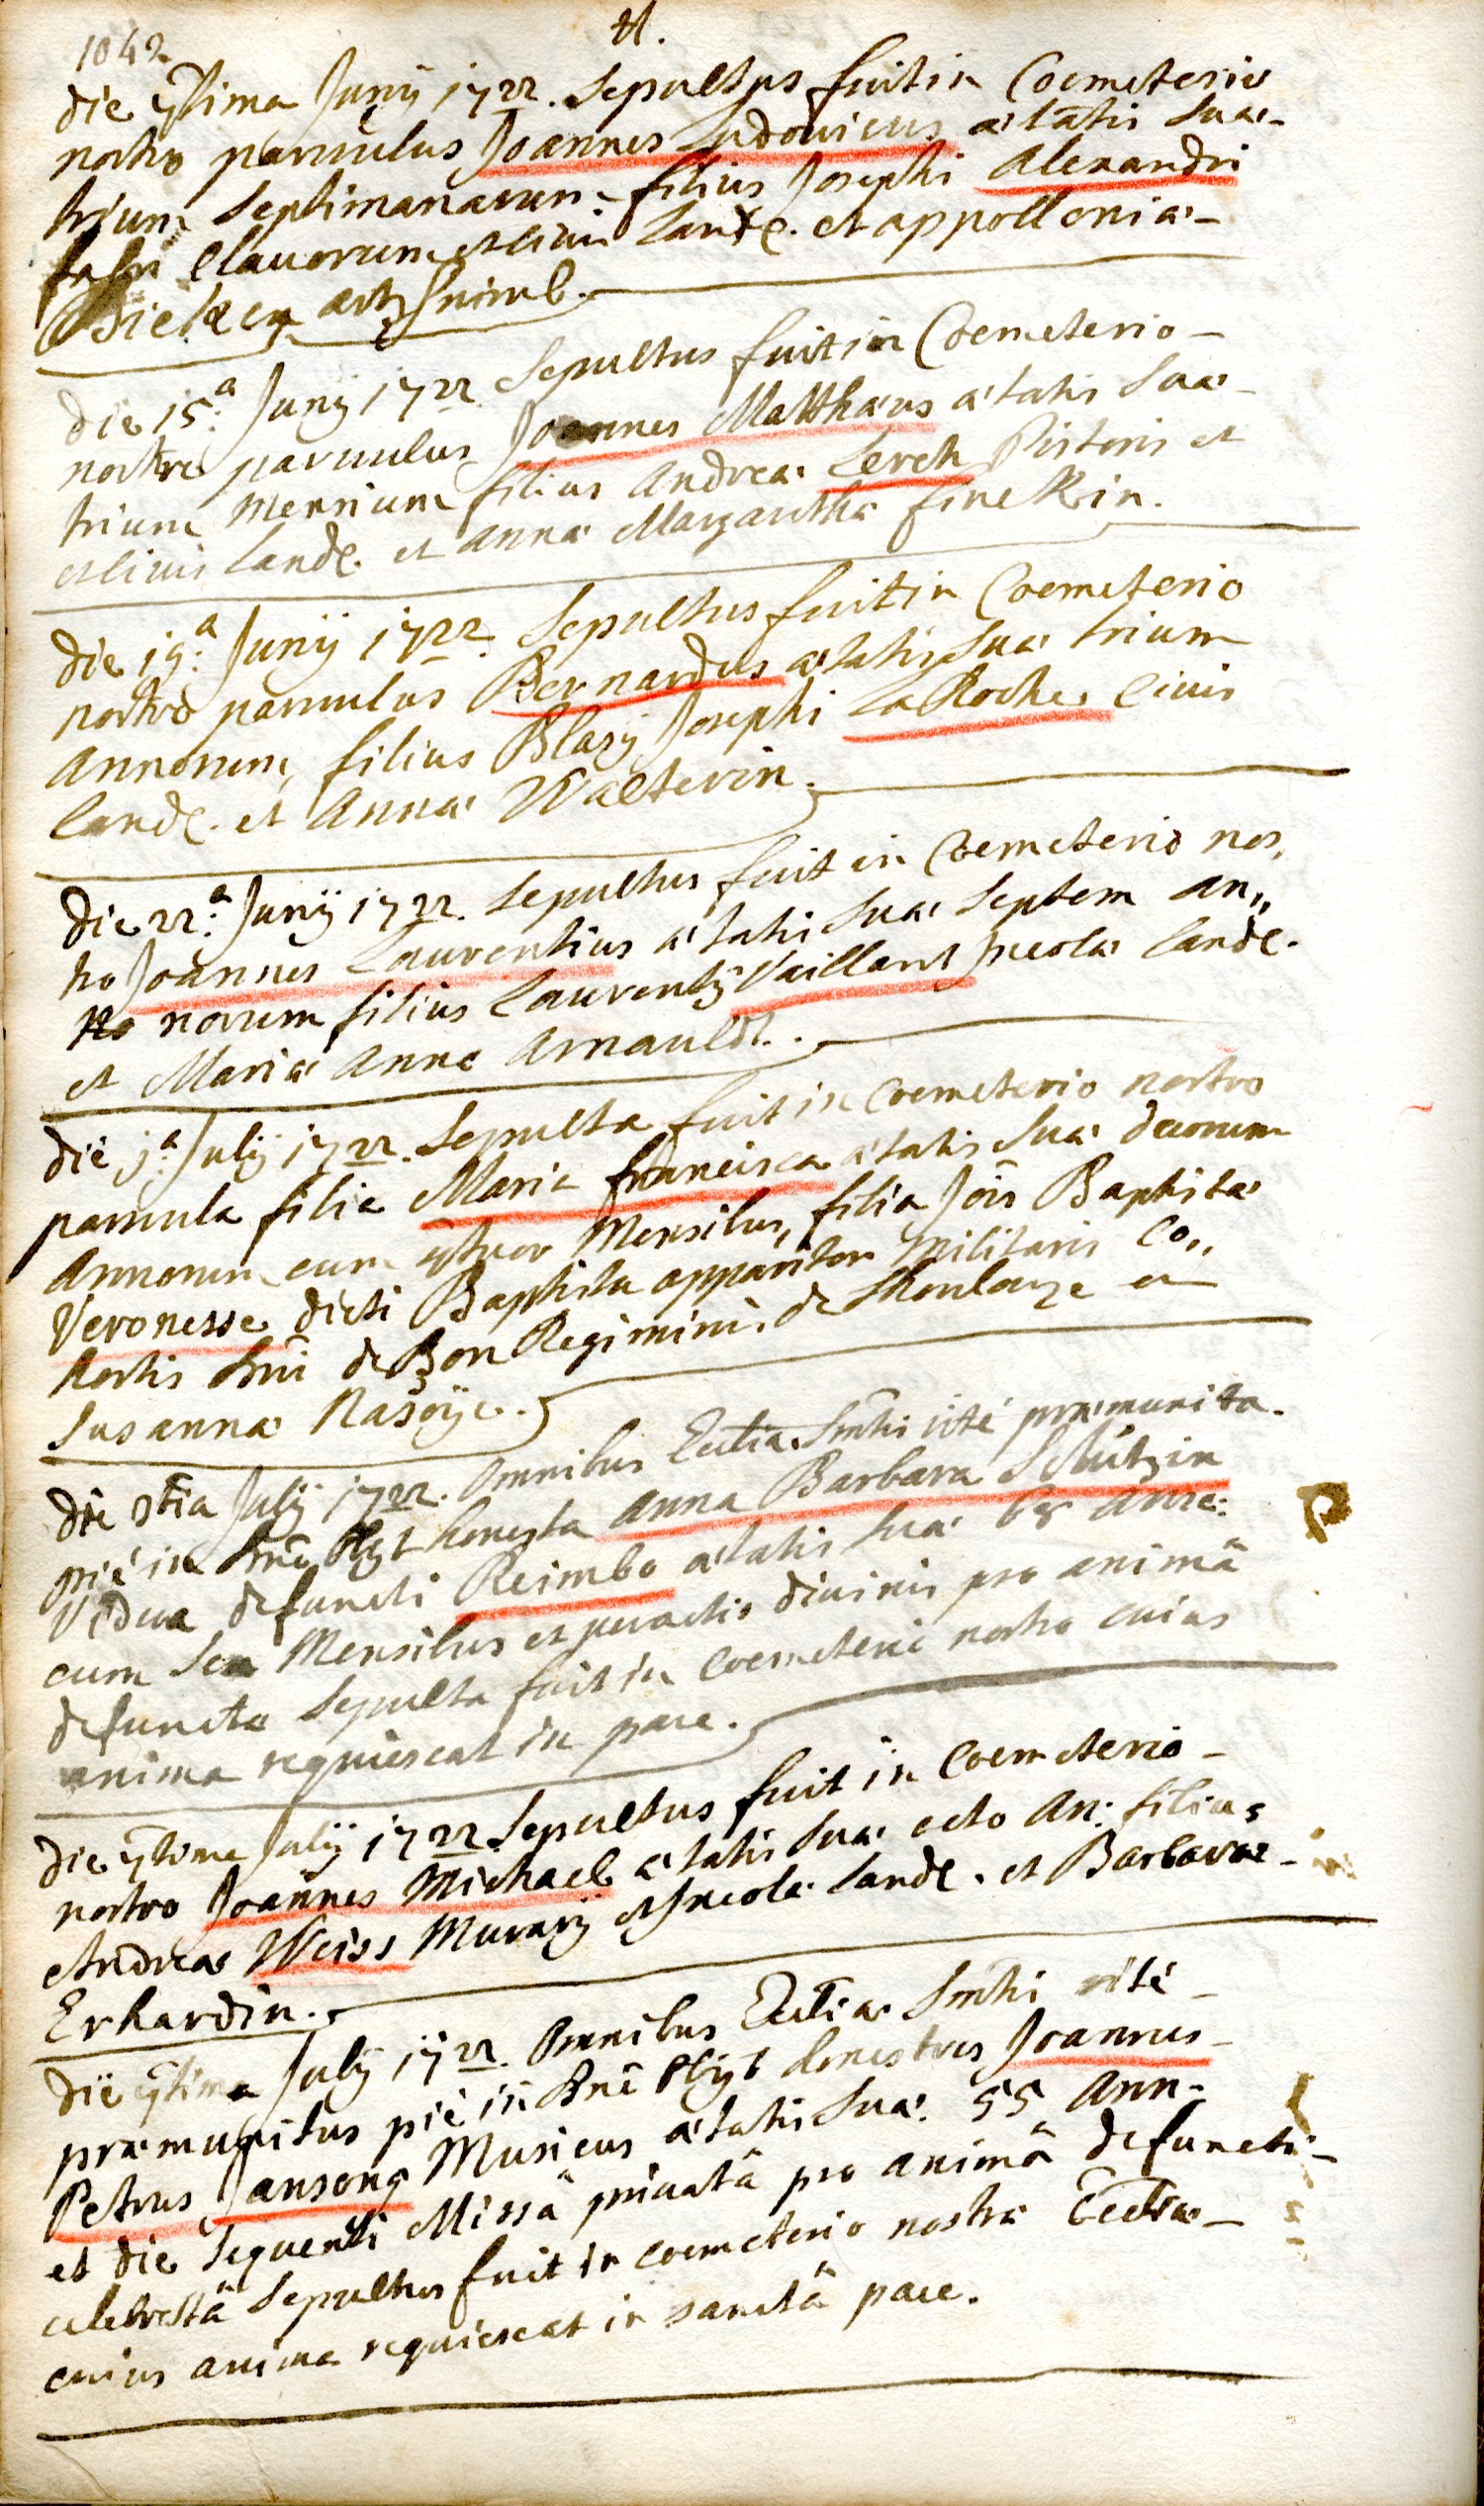 1042
die 7tima Junÿ 1722. Sepultus fuit in Coemeterio
nostro parvulus Joannes Ludovicus ætatis suæ
trium Septimanarum filius Josephi Alexandri
fabri Clavorum et civis Land. et appolloniæ
die 15.a Junÿ 1722. Sepultus fuit in Coemeterio
nostro parvulus Joannes Matthæus ætatis suæ
trium Mensium filius Andreæ Lerch Pistoris et
et civis Land. et Annæ Margarithæ finckin.
die 19.a Junÿ 1722. Sepultus fuit in Coemeterio
nostro parvulus Bernardus ætatis suæ trium
Annorum, filius Blasÿ Josephi LaRoche, Civis
Land. et Annæ Walterin.
die 22.a Junÿ 1722. Sepultus fuit in Coemeterio nos,
tro Joannes Laurentius ætatis suæ Septem an,,
norum filius Laurentÿ Vaillant Incolæ Land.
et Mariæ Annæ Arnauldt.
die j.a Julÿ 1722. Sepulta fuit in Coemeterio nostro
parvula filia Maria francisca ætatis suæ duorum
Annorum cum Mensibus, filia Jois Baptistæ
Veronesse dicti Baptista apparitor Militaris Co,,
hortis Dni de Bon Regiminis de
Susannæ
die 3tia Julÿ 1722. Omnibus Ecclia Smtis rité præmunita
pié in Dno Obÿt honesta Anna Barbara Schützin
Vidua defuncti Reimbo ætatis suæ 68 Anno:
cum Sex Mensibus et peractis divinis pro animâ
defunctæ Sepulta fuit in Coemeterio nostro cuius
anima requiescat in pace.
die 7tima Julÿ 1722 Sepultus fuit in Coemeterio
nostro Joannes Michael ætatis suæ octo An: filius
Andreæ Weiss Murarÿ et Incolæ Land. et Barbaræ
Erhardin.
die 7tima Julÿ 1722. Omnibus Ecclia Smtis rité
præmunitus pié in Dno Obÿt honestus Joannes
Petrus Jansong Musicus ætatis suæ. 55 Ann:
et die sequenti Missâ privatâ pro animâ defuncti
celebratâ Sepultus fuit in coemeterio nostræ Eccliæ
cuius anima requiescat in sanctâ pace.